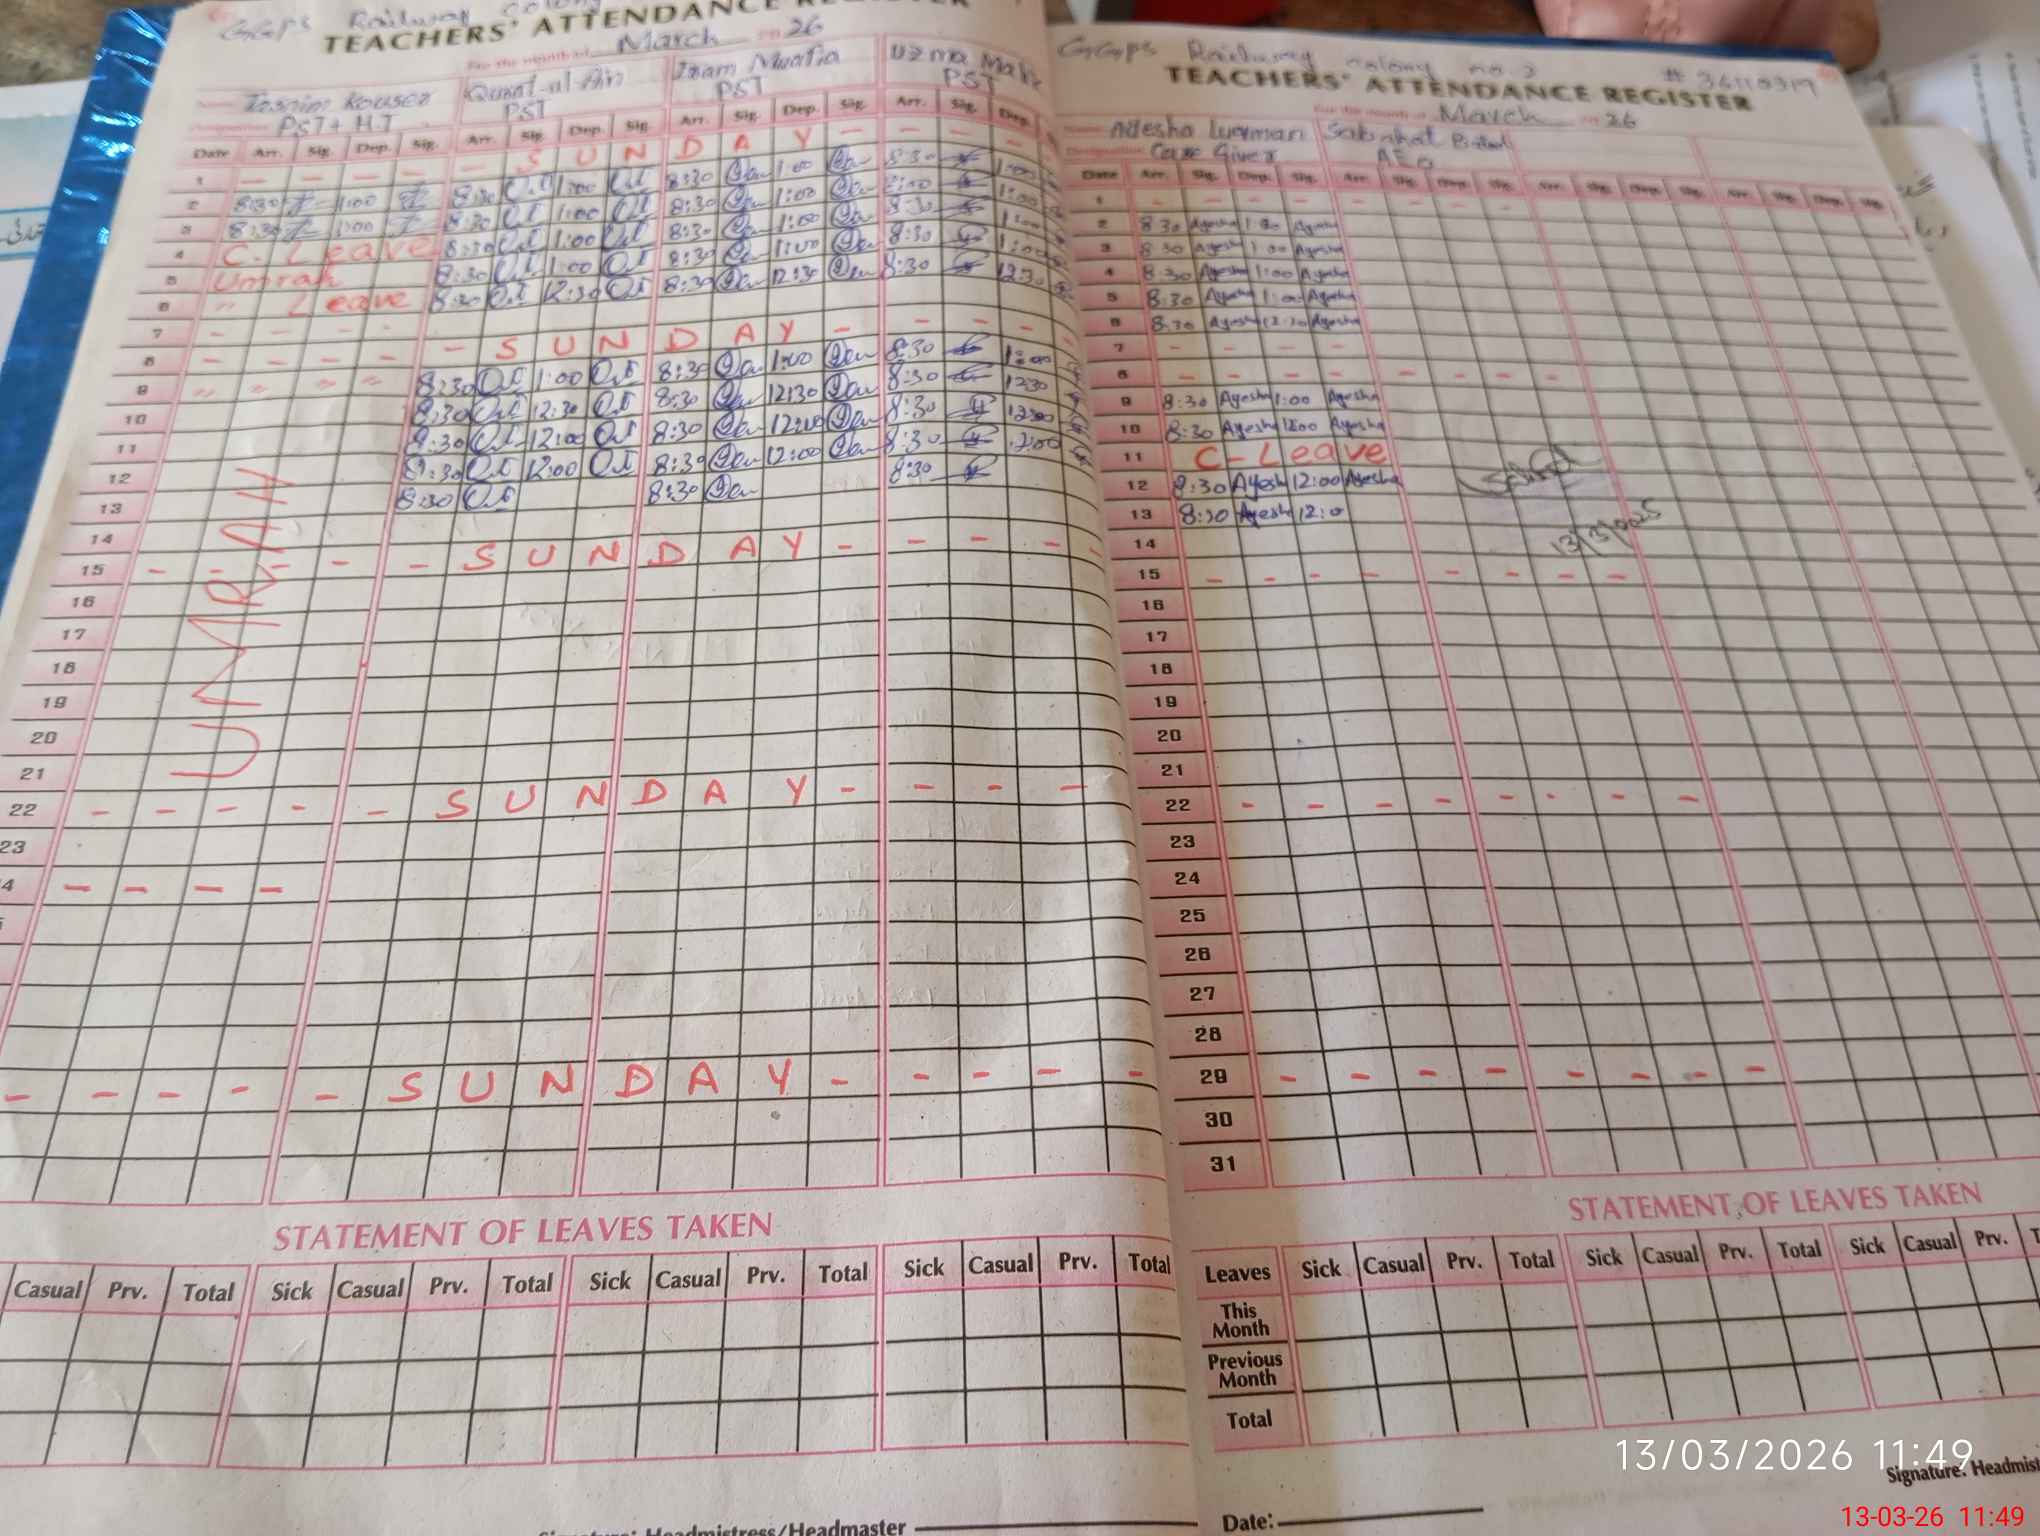 GGPS Railway Colony
TEACHERS' ATTENDANCE REGISTER
For the month of March 26
Tasnim Kouser Qurat-ul-Ain Iram Munfia Uzma Mali
PST+H.T PST PST PST
Date Arr. Sig. Dep. Sig. Arr. Sig. Dep. Sig. Arr. Sig. Dep. Sig. Arr. Sig. Dep.
1 - - - - - S U N D A Y - - - -
2 8:30 1:00 8:30 1:00 8:30 1:00 8:30 1:00
3 8:30 1:00 8:30 1:00 8:30 1:00 1:00
4 C. Leave 8:30 1:00 8:30 1:00 8:30 1:00
5 Umrah 8:30 1:00 8:30 1:00 8:30 1:00
6 " Leave 8:30 12:30 8:30 12:30 8:30 12:30
7 - - - -
8 - - - - - S U N D A Y - - - -
9 " " " " 8:30 1:00 8:30 1:00 8:30 1:00
10 8:30 12:30 8:30 12:30 8:30 1230
11 8:30 12:00 8:30 12:00 8:30 12:00
12 8:30 12:00 8:30 12:00 8:30 12:00
13 8:30 8:30 8:30
14
15 - - - - - S U N D A Y - - - -
UMRAH
16
17
18
19
20
21
22 - - - - - S U N D A Y - - - -
23
4 - - - -
- - - - - S U N D A Y - - - - -
STATEMENT OF LEAVES TAKEN
Casual Prv. Total Sick Casual Prv. Total Sick Casual Prv. Total Sick Casual Prv. Total
Signature: Headmistress/Headmaster
GGPS Railway Colony no. 2 # 36110319
TEACHERS' ATTENDANCE REGISTER
For the month of March 26
Name Ayesha Luqman Sabahat Batool
Designation Care Giver AEO
Date Arr. Sig. Dep. Sig. Arr. Sig. Dep. Sig. Arr. Sig. Dep. Sig. Arr. Sig. Dep. Sig.
1 - - - - - - - -
2 8 30 Ayesha 1:00 Ayesha
3 8 30 Ayesha 1:00 Ayesha
4 8:30 Ayesha 1:00 Ayesha
5 8:30 Ayesha 1:00 Ayesha
6 8:30 Ayesha 12:30 Ayesha
7 - - - -
8 - - - - - - - -
9 8:30 Ayesha 1:00 Ayesha
10 8:30 Ayesha Ayesha
11 C-Leave
12 8:30 Ayesh 12:00 Ayesha
13 8:30 Ayesh 12:0
14
15 - - - - - - - -
16
17
18
19
20
21
22 - - - - - - - -
23
24
25
26
27
28
29 - - - - - - - -
30
31
STATEMENT OF LEAVES TAKEN
Leaves Sick Casual Prv. Total Sick Casual Prv. Total Sick Casual Prv. T
This Month
Previous Month
Total
13/03/2026 11:49
Signature: Headmist
Date:
13-03-26 11:49